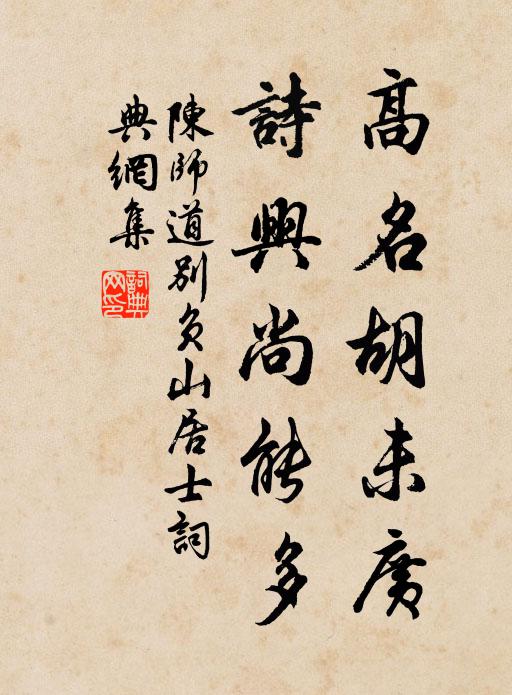 高名胡未廣
詩興尚能多
陳師道別負山居士詞
典網集
詞典
网印